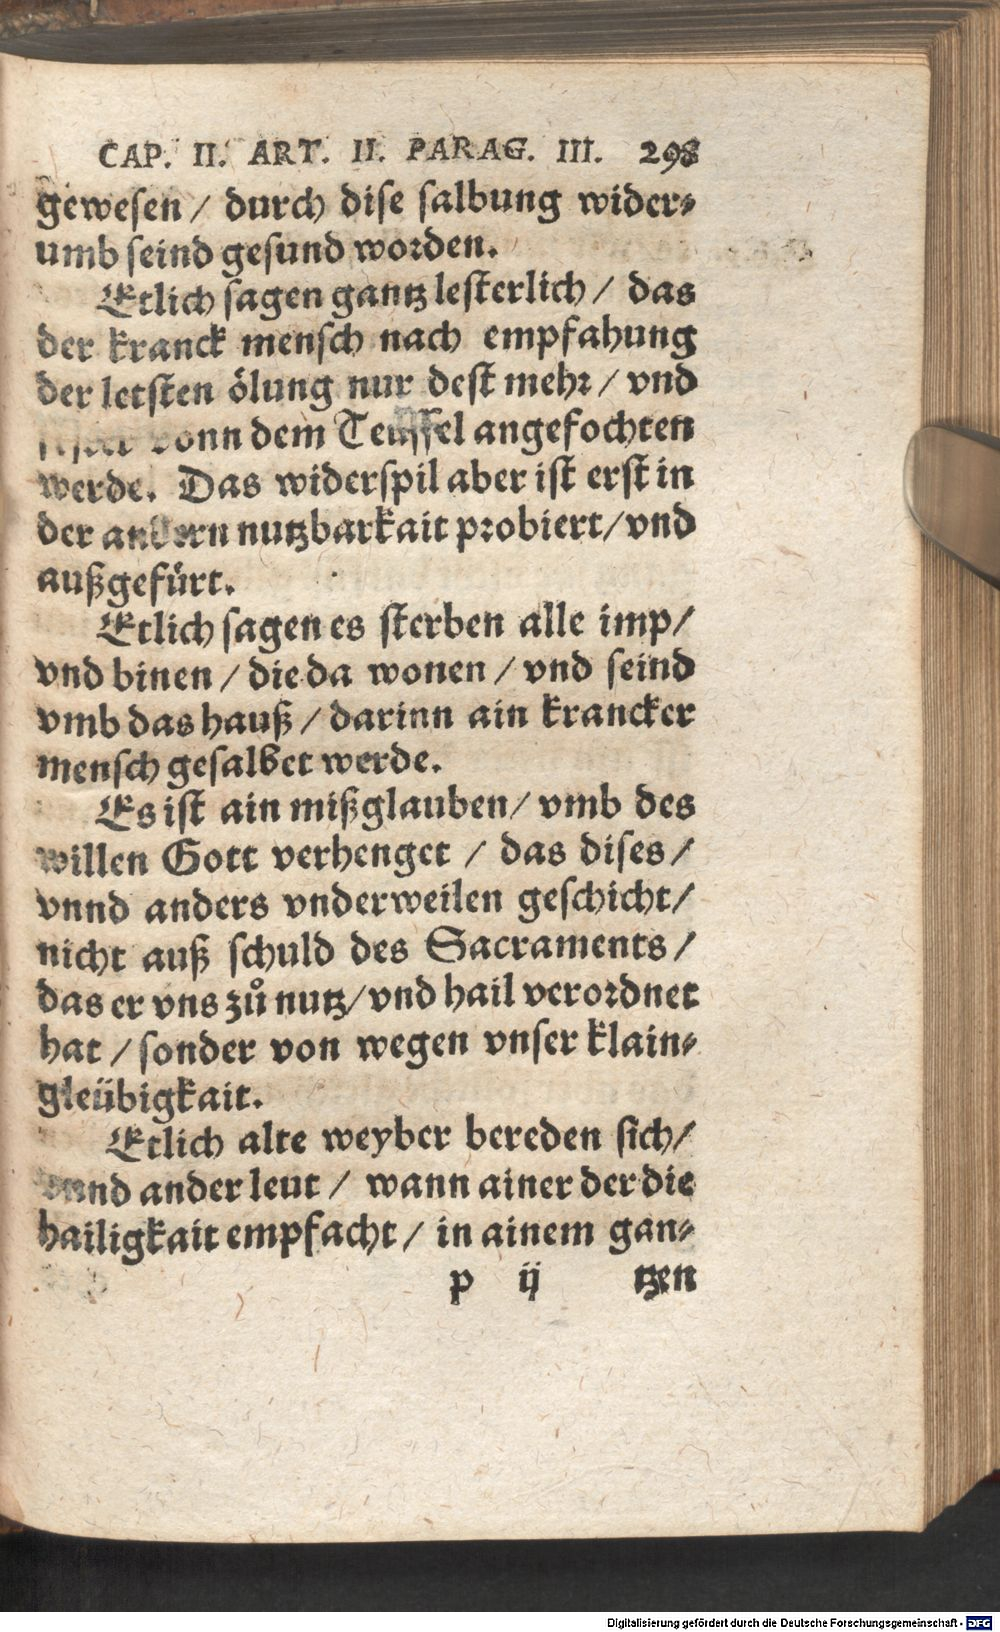 CAP. II. ART. II. PARAG. III. 298
gewesen / durch dise salbung wider⸗
umb seind gesund worden.
Etlich sagen gantz lesterlich / das
der kranck mensch nach empfahung
der letsten ölung nur dest mehr / vnd
vonn dem Teuffel angefochten
werde. Das widerspil aber ist erst in
der andern nutzbarkait probiert / vnd
außgefürt.
Etlich sagen es sterben alle imp /
vnd binen / die da wonen / vnd seind
vmb das hauß / darinn ain krancker
mensch gesalbet werde.
Es ist ain mißglauben / vmb des
willen Gott verhenget / das dises /
vnnd anders vnderweilen geschicht /
nicht auß schuld des Sacraments /
das er vns zů nutz / vnd hail verordnet
hat / sonder von wegen vnser klain⸗
gleübigkait.
Etlich alte weyber bereden sich /
vnnd ander leut / wann ainer der die
hailigkait empfacht / in ainem gan⸗
p ij tzen
Digitalisierung gefördert durch die Deutsche Forschungsgemeinschaft - DFG